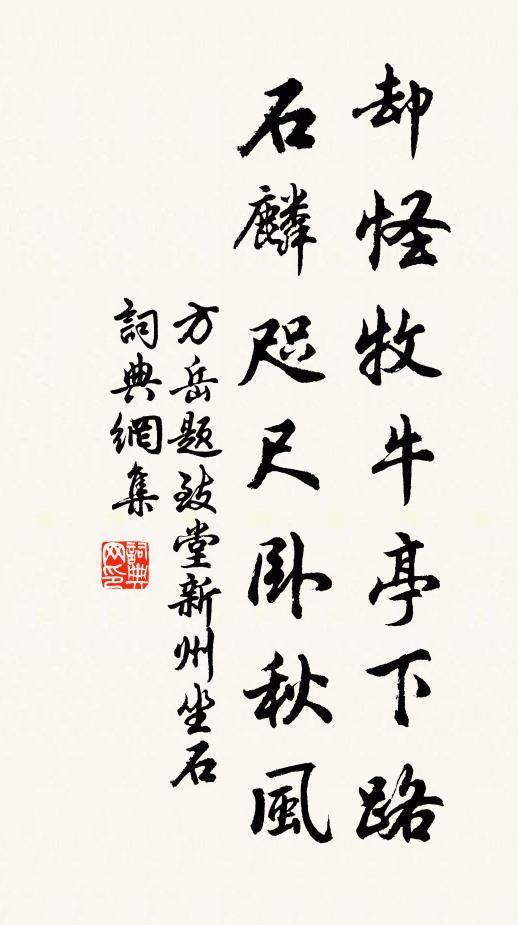 却怪牧牛亭下路
石麟咫尺卧秋風
方岳題致堂新州坐石
詞典網集
詞典网印